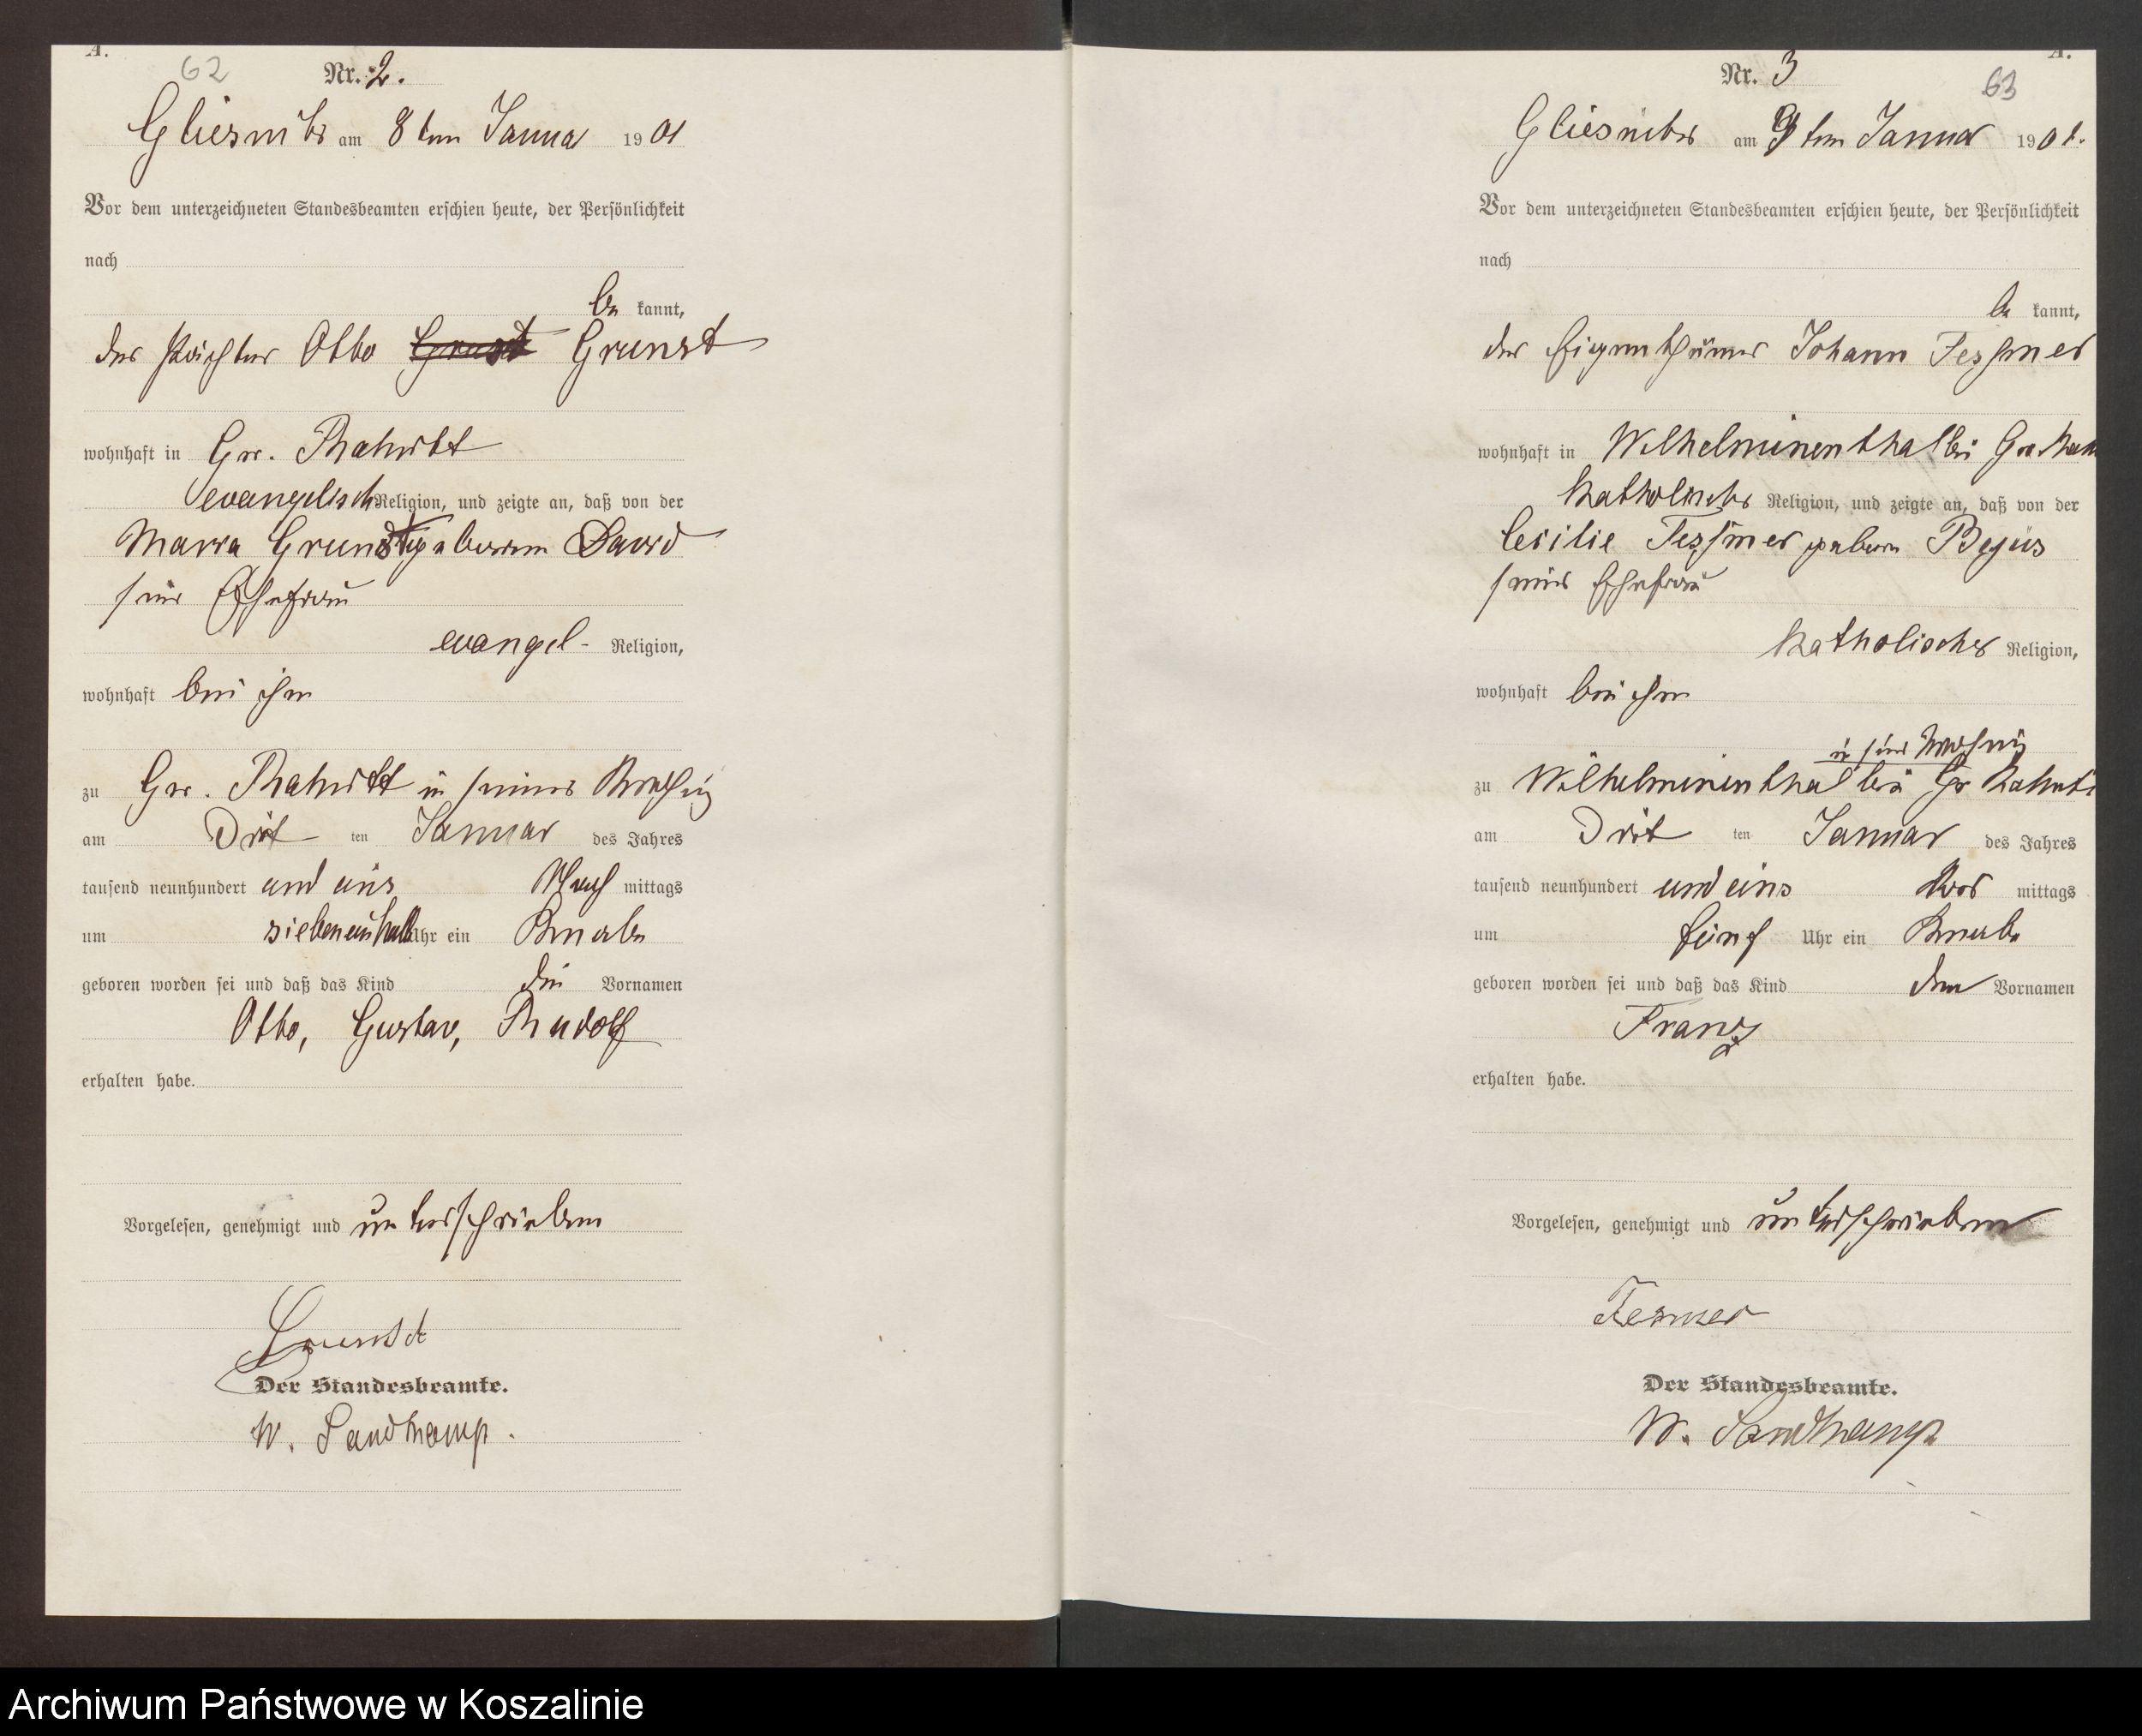 A.
62
Nr. 2.
Gliesnitz am 8ten Januar 1901
Vor dem unterzeichneten Standesbeamten erschien heute, der Persönlichkeit
nach
be kannt,
der Pächter Otto Grunst
wohnhaft in Gr. Rakitt
evangelisch Religion, und zeigte an, daß von der
Maria Grunst geborenen David
seine Ehefrau
evangel- Religion,
wohnhaft bei ihm
zu Gr. Rakitt in seiner Wohnung
am Drit ten Januar des Jahres
tausend neunhundert und eins Nach mittags
um siebeneinhalb Uhr ein Knabe
geboren worden sei und daß das Kind die Vornamen
Otto, Gustav, Rudolf
erhalten habe.
Vorgelesen, genehmigt und unterschrieben
Grunst
Der Standesbeamte.
W. Sandkamp.
A.
Nr. 3
63
Gliesnitz am 9ten Januar 1901.
Vor dem unterzeichneten Standesbeamten erschien heute, der Persönlichkeit
nach
be kannt,
der Eigenthümer Johann Tessmer
wohnhaft in Wilhelminenthal bei Gr.
katholischer Religion, und zeigte an, daß von der
Cecilie Tessmer geboren
seine Ehefrau
katholischer Religion,
wohnhaft bei ihm
in seine Wohnung
zu Wilhelminenthal bei Gr Rakitt
am Drit ten Januar des Jahres
tausend neunhundert und eins Vor mittags
um fünf Uhr ein Knabe
geboren worden sei und daß das Kind den Vornamen
Franz
erhalten habe.
Vorgelesen, genehmigt und unterschrieben
Tesmer
Der Standesbeamte.
W. Sandkamp
Archiwum Państwowe w Koszalinie